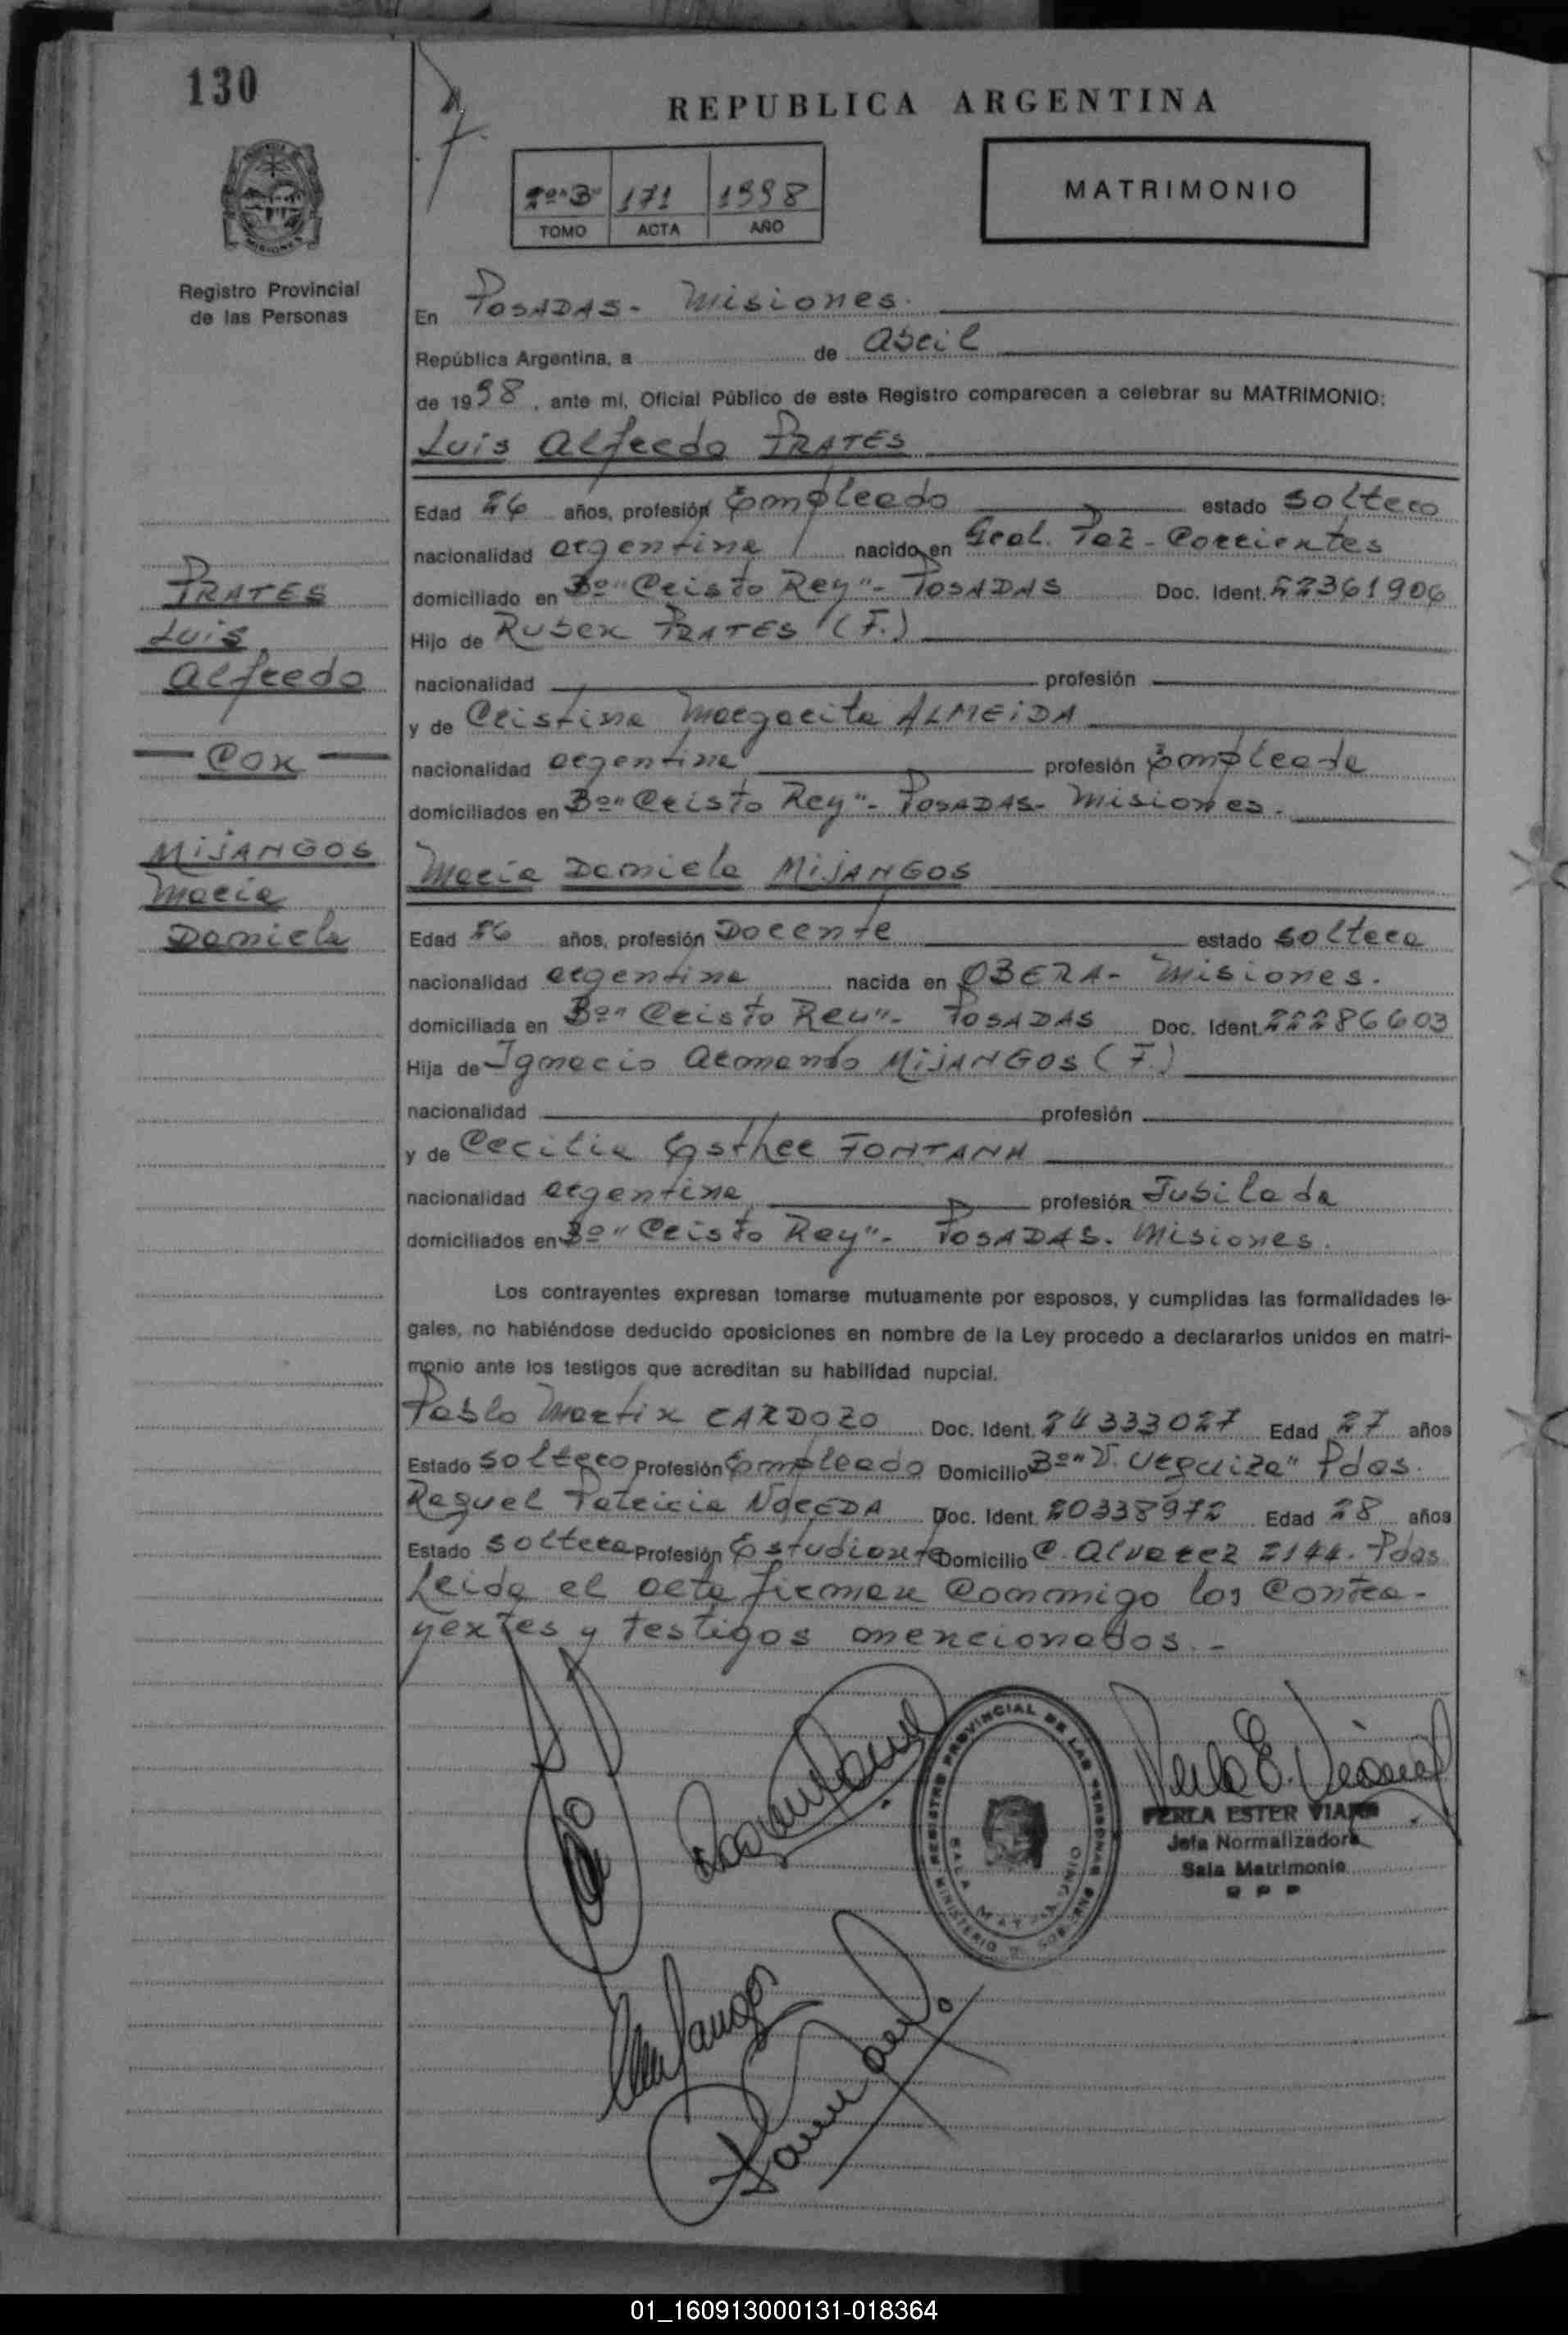 130
REPUBLICA ARGENTINA
2º"B" 171 1998
TOMO ACTA AÑO
MATRIMONIO
Registro Provincial
de las Personas
En POSADAS- Misiones.
República Argentina, a de Abril
de 1998, ante mí, Oficial Público de este Registro comparecen a celebrar su MATRIMONIO:
Luis Alfredo PRATES
Edad 26 años, profesión Empleado estado soltero
nacionalidad argentina nacido en Gral. Paz - Corrientes
domiciliado en Bº"Cristo Rey"- POSADAS Doc. Ident. 22361906
Hijo de Ruben PRATES (F.)
nacionalidad profesión
y de Cristina Margarita ALMEIDA
nacionalidad argentina profesión Empleada
domiciliados en Bº"Cristo Rey"- POSADAS- Misiones.
PRATES
Luis
Alfredo
Con
MIJANGOS
Maria
Daniela
Maria Daniela MIJANGOS
Edad 26 años, profesión Docente estado soltera
nacionalidad argentina nacida en OBERA- Misiones.
domiciliada en Bº"Cristo Rey"- POSADAS Doc. Ident. 22286603
Hija de Ignacio Armando MIJANGOS (F.)
nacionalidad profesión
y de Cecilia Esther FONTANA
nacionalidad argentina profesión Jubilada
domiciliados en Bº"Cristo Rey"- POSADAS. Misiones.
Los contrayentes expresan tomarse mutuamente por esposos, y cumplidas las formalidades le-
gales, no habiéndose deducido oposiciones en nombre de la Ley procedo a declararlos unidos en matri-
monio ante los testigos que acreditan su habilidad nupcial.
Pablo Martin CARDOZO Doc. Ident. 24333027 Edad 27 años
Estado soltero Profesión Empleado Domicilio Bº"V. Urquiza" Pdas.
Raquel Patricia Doc. Ident. 20338972 Edad 28 años
Estado soltera Profesión Estudiante Domicilio C. Alvarez 2144. Pdas
Leida el acta firman conmigo los contra-
yentes y testigos mencionados.-
REGISTRO PROVINCIAL DE LAS PERSONAS
MINISTERIO DE GOBIERNO
SALA MATRIMONIO
PERLA ESTER VIANA
Jefa Normalizadora
Sala Matrimonio
01_160913000131-018364